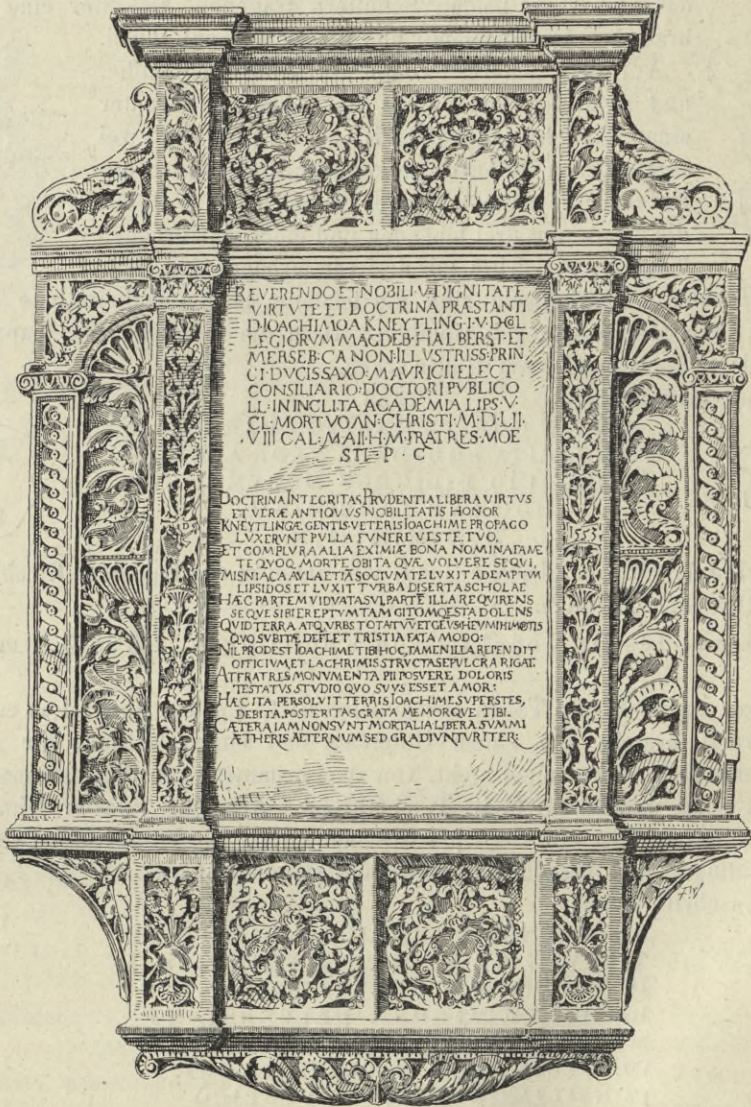 REVERENDO ET NOBILI·V·DIGNITATE
VIRTVTE ET DOCTRINA PRÆSTANTI
D·IOACHIMO A KNEYTLING·I·V·D·COL
LEGIORVM MAGDEB·HALBERST·ET
MERSEB·CANON·ILLVSTRISS·PRIN
CI·DVCIS SAXO·MAVRICII ELECT
CONSILIARIO·DOCTORI PVBLICO
LL·IN INCLITA ACADEMIA LIPS·V·
CL·MORTVO AN·CHRISTI·M·D·LII·
VIII CAL·MAII·H·M·FRATRES·MOE
STI P·C
DOCTRINA INTEGRITAS PRVDENTIA LIBERA VIRTVS
ET VERÆ ANTIQVVS NOBILITATIS HONOR
KNEYTLINGÆ GENTIS VETERIS IOACHIME PROPAGO
LVXERVNT PVLLA FVNERE VESTE TVO,
ET COMPLVRA ALIA EXIMIÆ BONA NOMINA FAME
TE QVOQ MORTE OBITA QVÆ VOLVERE SEQVI,
MISNIACA AVLA ETIĀ SOCIVM TE LVXIT ADEMPTVM
LIPSIDOS ET LVXIT TVRBA DISERTA SCHOLAE
HÆC PARTEM VIDVATA SVI, PARTĒ ILLA REQVIRENS
SEQVE SIBI EREPTVM TAM CITO MOESTA DOLENS
QVID TERRA ATQ VRBS TOTA
QVO SVBITĒ DEFLET TRISTIA FATA MODO:
NIL PRODEST IOACHIME TIBI HOC, TAMEN ILLA REPENDIT
OFFICIVM, ET LACHRIMIS STRVCTA SEPVLCRA RIGAT.
AT FRATRES MONVMENTA PII POSVERE DOLORIS
TESTATVS STVDIO QVO SVVS ESSET AMOR:
HÆC ITA PERSOLVIT TERRIS IOACHIME, SVPERSTES,
DEBITA, POSTERITAS GRATA MEMORQVE TIBI.
CÆTERA IAM NON SVNT MORTALIA LIBERA SVMMI
ÆTHERIS AETERNUM SED GRADIVNTVR ITER:
1553